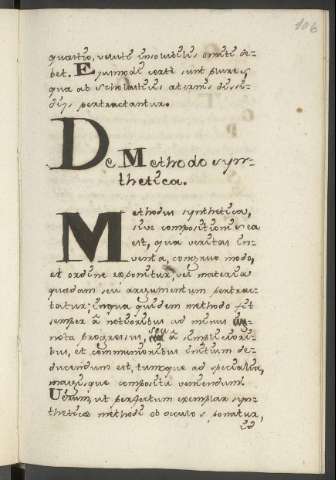 106
quaestio, veluti insolubilis omitti de-
bet. Ejusmodi certè sunt plures
quae at Scholasticis aeternis dissi-
dijs pertractantur.
De Methodo syn-
thetica.
Methodus synthetica,
sive compositionis ea
est, qua veritas in-
venta, congruo modo,
et ordine exponitur, vel materia
quaedam seu argumentum pertrac-
tatur; in qua quidem methodo fit
semper à notioribus ad minus
nota progressus, seu à simpliciori-
bus, et communioribus initium de-
ducendum est, tumque ad specialia,
magisque composita veniendum.
Verùm, ut perfectum exemplar syn-
theticae methodi ob oculos ponatur,